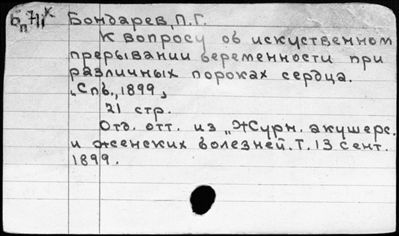 Бондарев, П. Г.
К вопросу об искуственном
прерывании беременности при
различных пороках сердца.
Спб., 1899,
21 стр.
Отд. отт. из „Журн. акушерс.
и женских болезней. Т. 13 сент.
1899.